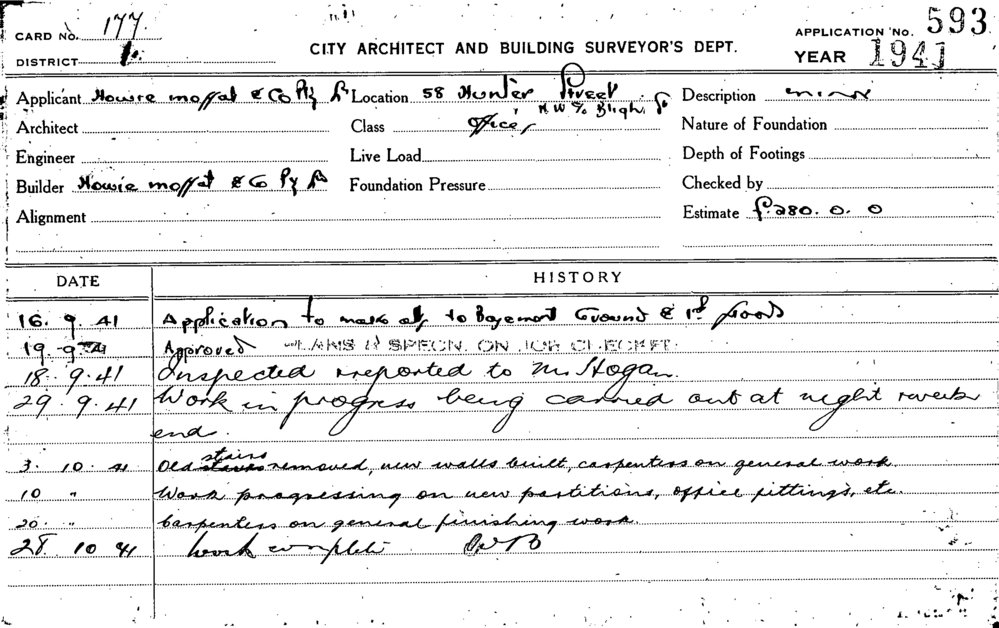 CARD No. 177.
DISTRICT 1.
CITY ARCHITECT AND BUILDING SURVEYOR'S DEPT.
APPLICATION No. 593
YEAR 1941
Applicant Howie moffat & Co Pty Ld Location 58 Hunter Street Description minor
N.W. Bligh. St
Architect Class Offices Nature of Foundation
Engineer Live Load Depth of Footings
Builder Howie moffat & Co Py Ld Foundation Pressure Checked by
Alignment Estimate £280. 0. 0
DATE HISTORY
16. 9. 41 Application to make alts to Basement Ground & 1st floors
19 - 9 - 41 Approved PLANS & SPECN. ON JOB CHECKED.
18. 9. 41 Inspected & reported to Mr Hogan.
29. 9. 41 Work in progress being carried out at night & week
end.
3. 10. 41 Old stairs removed, new walls built, carpenters on general work
10 " Work progressing on new partitions, office fittings, etc.
20. " Carpenters on general finishing work.
28. 10 41 Work complete